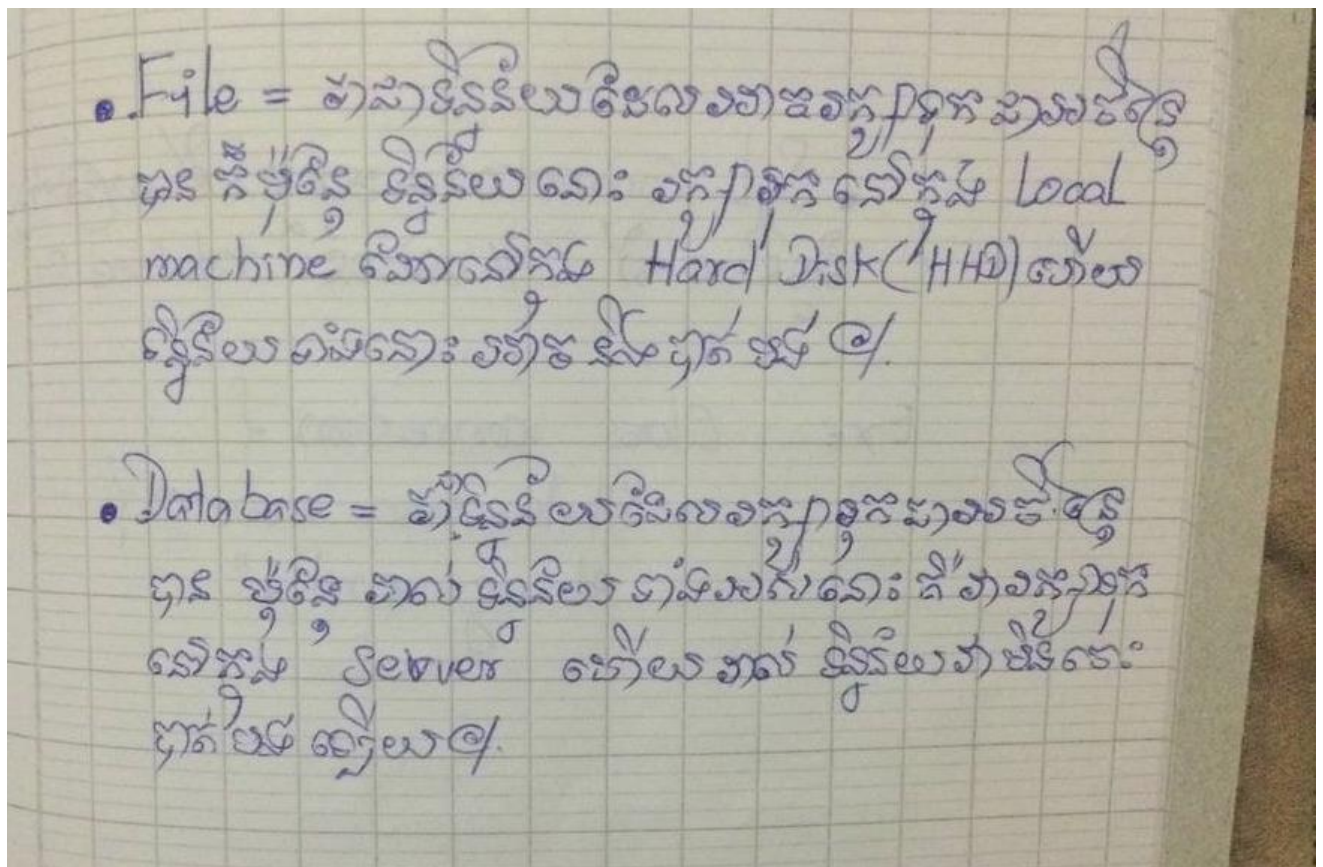 • File = វាជាទិន្នន័យដែលអាចរក្សាទុកជាអចិន្ត្រៃ
បាន ក៏ប៉ុន្តែ ទិន្នន័យនោះ រក្សាទុកនៅក្នុង Local
machine ដែលនៅក្នុង Hard Disk (HHD) ហើយ
ទិន្នន័យទាំងនោះ អាច នឹងបាត់បង់ ។
• Database = វាជាទិន្នន័យដែលរក្សាទុកជាអចិន្ត្រៃ
បាន ប៉ុន្តែ រាល់ទិន្នន័យទាំងអស់នោះ គឺវារក្សាទុក
នៅក្នុង Server ហើយរាល់ ទិន្នន័យវាមិនចេះ
បាត់បង់ ឡើយ ។